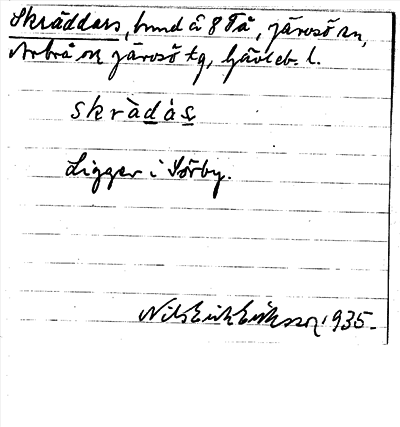 Skräddars, hmd å 8 Tå, Järvsö sn,
Arbrå ok Järvsö tg, Gävleb. l.
skràdàs
Ligger i Sörby.
Nils Erik Eriksson 1935.